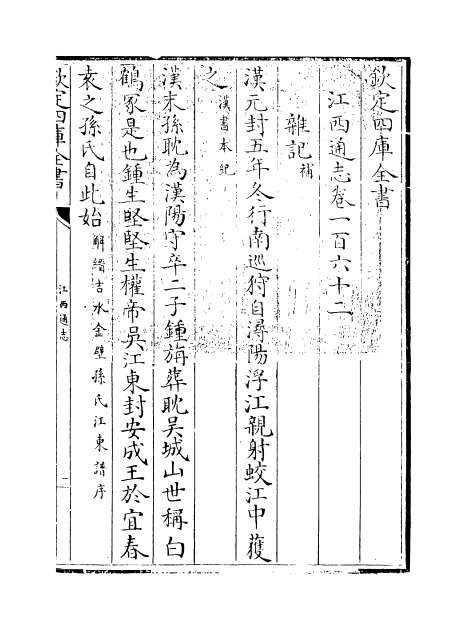 欽定四庫全書
江西通志卷一百六十二
雜記補
漢元封五年冬行南巡狩自潯陽浮江親射蛟江中獲
之漢書本紀
漢末孫耽為漢陽守卒二子鍾旃葬耽吳城山世稱白
鶴冢是也鍾生堅堅生權帝吳江東封安成王於宜春
袁之孫氏自此始解縉吉水金壁孫氏江東譜序
欽定四庫全書
江西通志
一